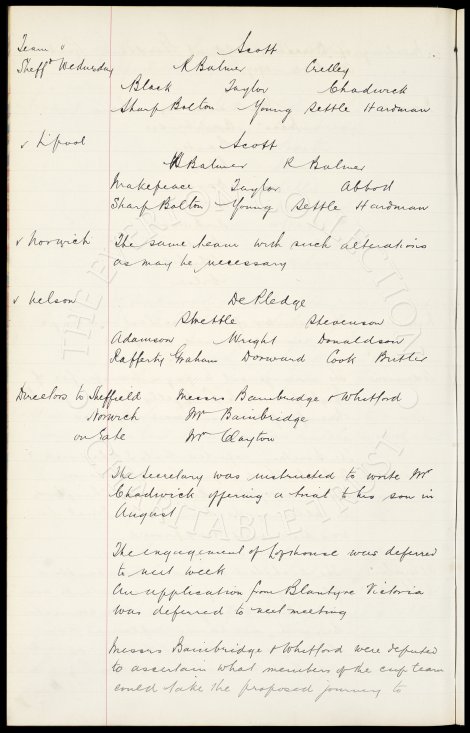 Team v Scott
Sheffd Wednesday R Balmer Crelley
Black Taylor Chadwick
Sharp Bolton Young Settle Hardman
v Lpool Scott
W Balmer R Balmer
Makepeace Taylor Abbott
Sharp Bolton Young Settle Hardman
v Norwich The same team with such alterations
as may be necessary
v Nelson De Pledge
Strettle Stevenson
Adamson Wright Donaldson
Rafferty Graham Dorward Cook Butler
Directors to Sheffield Messrs Bainbridge & Whitford
Norwich Mr Bainbridge
on Gate Mr Clayton
The Secretary was instructed to write Mr
Chadwick offering a trial to his son in
August
The engagement of was deferred
to next week
An application from Blantyre Victoria
was deferred to next meeting
Messrs Bainbridge & Whitford were deputed
to ascertain what members of the cup team
could take the proposed journey to
THE EVERTON COLLECTION
CHARITABLE TRUST